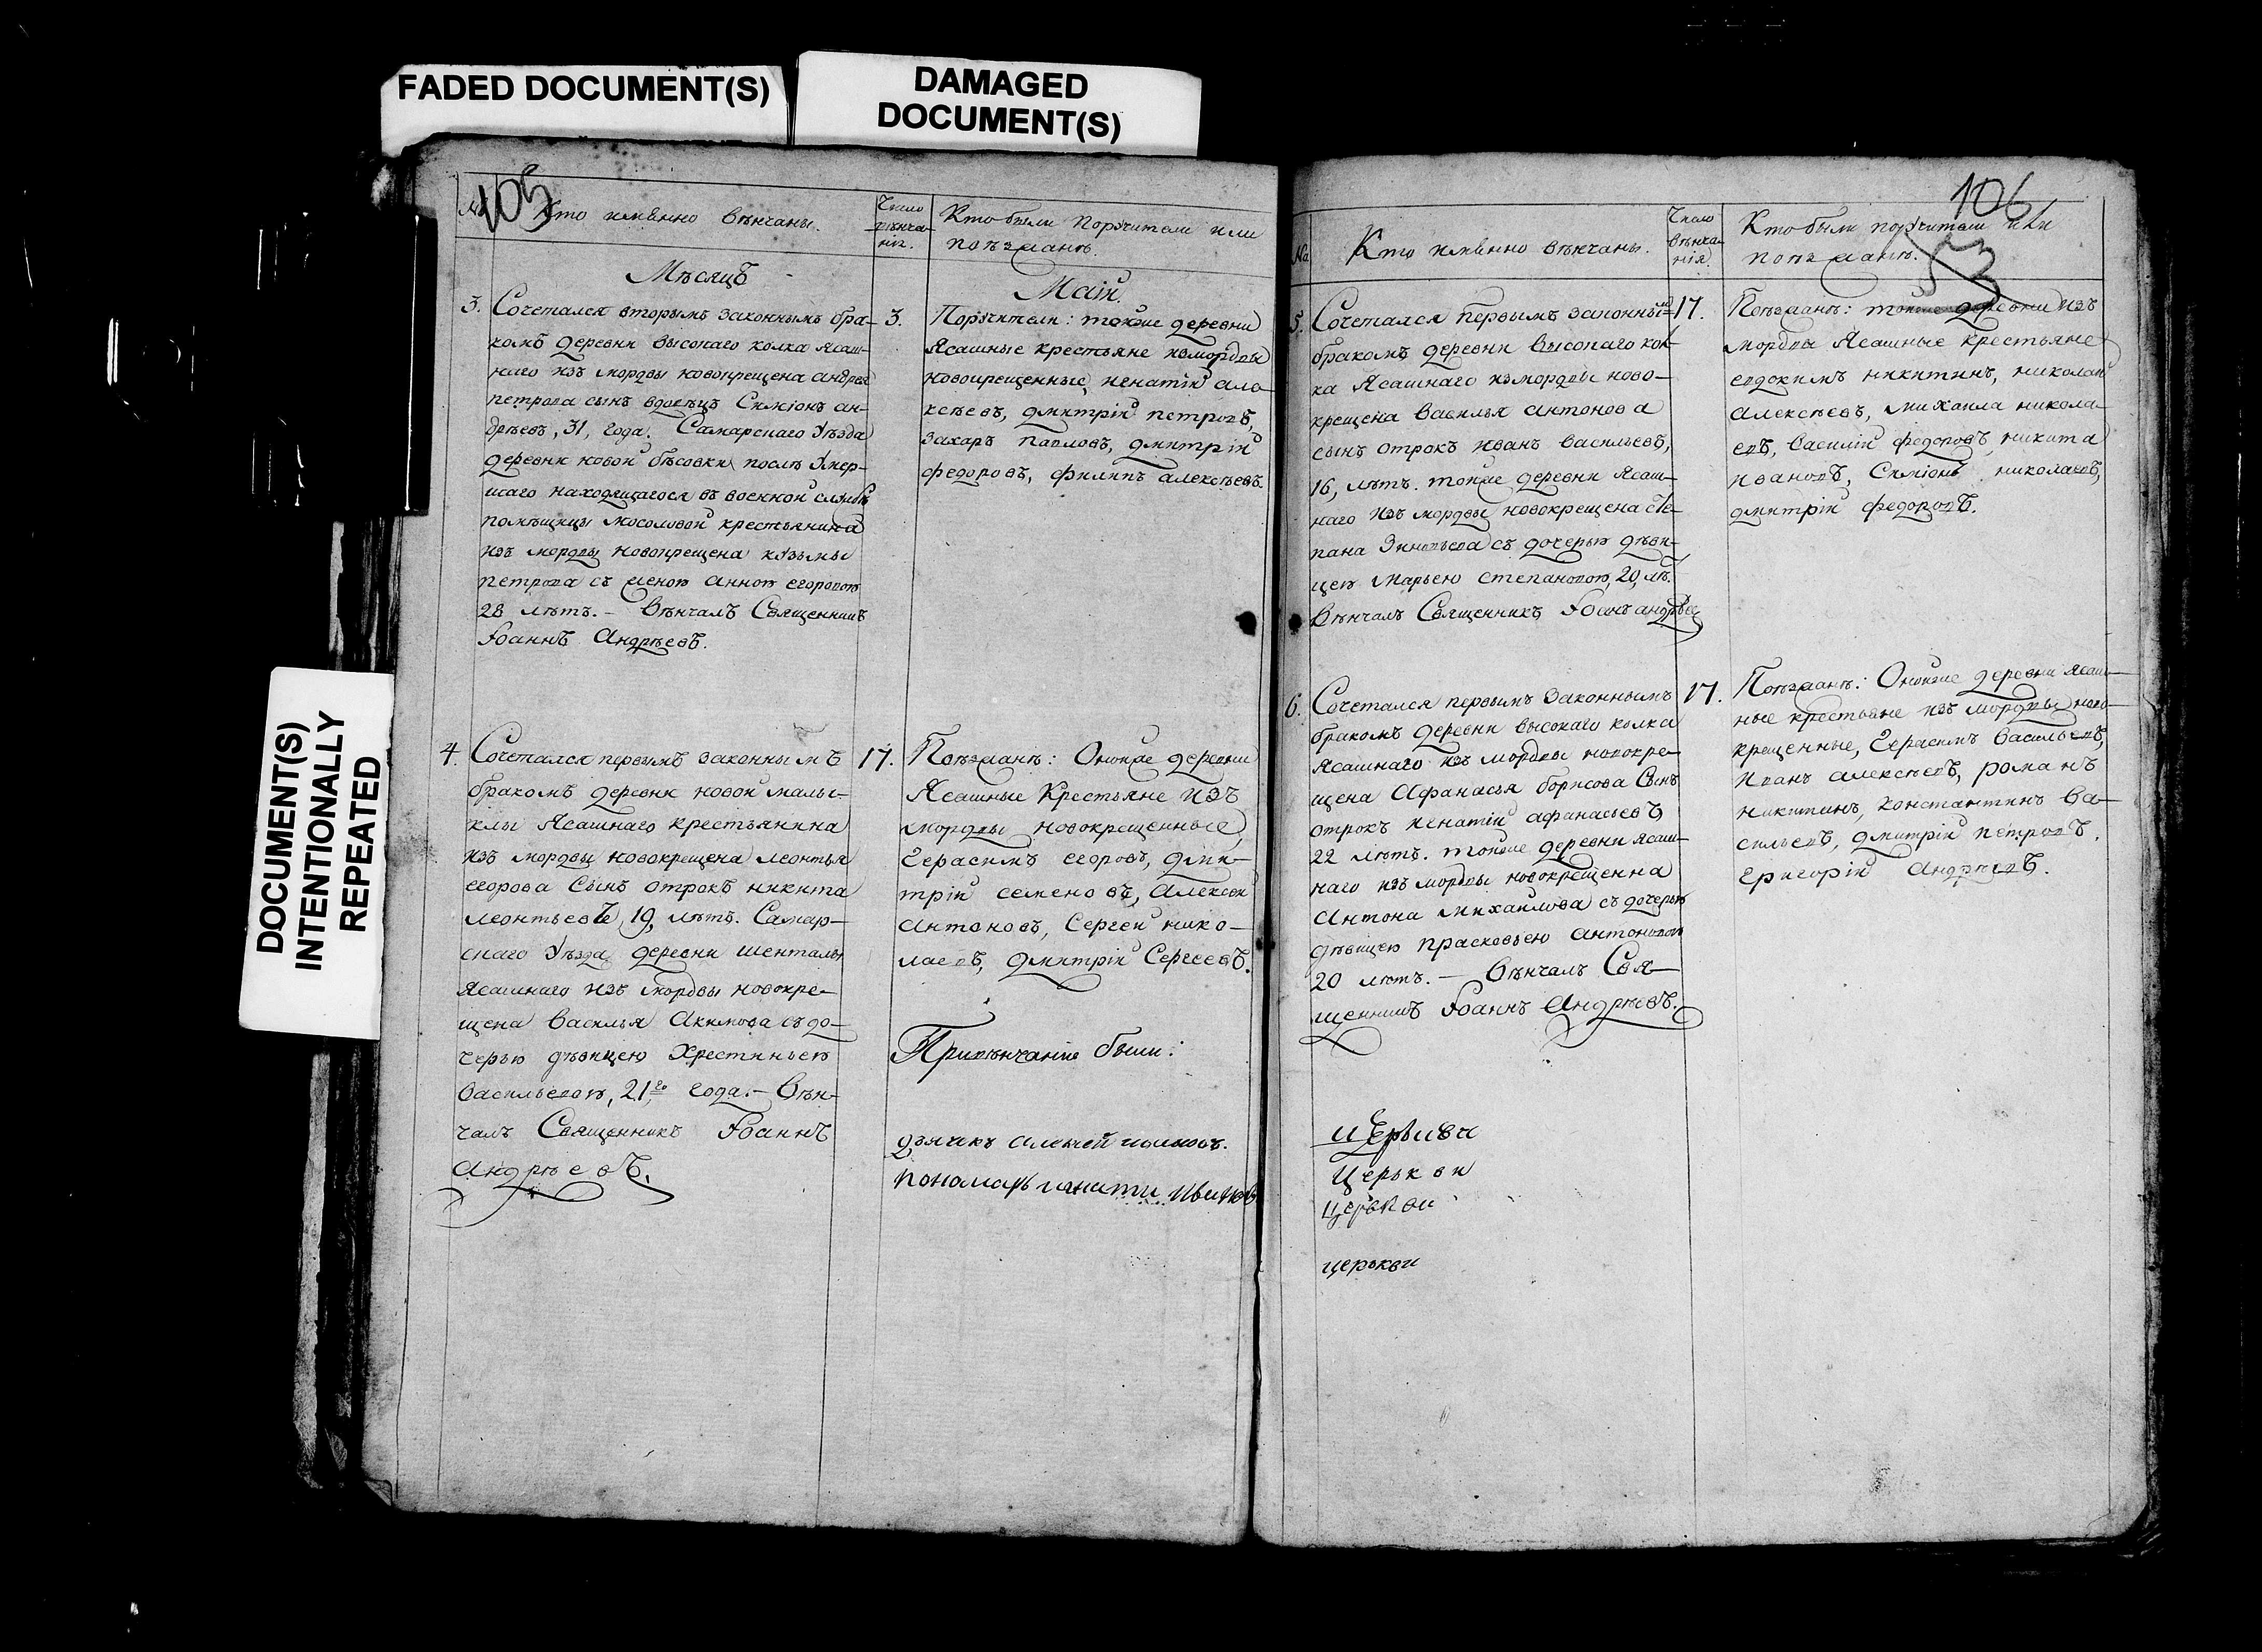 FADED DOCUMENT(S)
DAMAGED
DOCUMENT(S)
DOCUMENT(S)
INTENTIONALLY
REPEATED
105
№
Кто имянно вѣнчаны.
Число
вѣнча-
нія.
Кто были поручители или
поѣзжанѣ.
Мѣсяцъ
Маій.
3. Сочетался вторымъ законнымъ бра-
комъ деревни высокаго колка ясаш-
наго изъ мордвы новокрещена андрея
петрова сынъ вдовецъ Симіонъ ан-
дрѣевъ, 31, года. Самарскаго Уѣзда
деревни новой бѣсовки послѣ Умер-
шаго находящагося въ военной службѣ
помѣщицы мосоловой крестьянина
изъ мордвы новокрещена кузьмы
петрова съ женою анною егоровою
28 лѣтъ. – Вѣнчалъ Священникъ
Іоаннъ Андрѣевъ.
3.
Поручители: тояже деревни
Ясашные крестьяне измордвы
новокрещенные, игнатій але-
ксѣевъ, дмитрій петровъ,
захаръ павловъ, дмитрій
федоровъ, филипъ алексѣевъ
4. Сочетался первымъ законнымъ
бракомъ деревни новой малы-
клы Ясашнаго крестьянина
изъ мордвы новокрещена леонтья
егорова Сынъ отрокъ никита
леонтьевъ, 19, лѣтъ. Самар-
скаго Уѣзда деревни шенталы
Ясашнаго изъ мордвы новокре-
щена Василья Акимова съ до-
черью дѣвицею Хрестиньею
Васильевою, 21го года. – Вѣн-
чалъ Священникъ Іоаннъ
Андрѣевъ.
17.
Поѣзжанѣ: Оноиже деревни
Ясашные Крестьяне изъ
мордвы новокрещенные,
Герасимъ егоровъ, дми-
трій семеновъ, Алексей
Антоновъ, Сергей нико-
лаевъ, дмитрій Сергеевъ.
Привѣнчаніе были:
дьячикъ алексей
пономарь игнати ивановъ
106
53
№
Кто имянно вѣнчаны.
Число
вѣнча-
нія.
Кто были поручители или
поѣзжанѣ.
5. Сочетался первымъ законнымъ
бракомъ деревни высокаго кол-
ка Ясашнаго измордвы ново-
крещена Василья антонова
сынъ отрокъ иванъ Васильевъ,
16, лѣтъ. тояже деревни Ясаш-
наго изъ мордвы новокрещена сте-
пана Зиновьева съ дочерью дѣви-
цею Марьею степановою, 20, лѣ.
Вѣнчалъ Священникъ Іоаннъ андрѣев
17.
Поѣзжанѣ: тояже деревни изъ
мордвы Ясашные крестьяне
евдокимъ никитинъ, николай
алексѣевъ, михаила никола-
евъ, василій федоровъ, никита
ивановъ, Симіонъ николаевъ,
дмитрій федоровъ.
6. Сочетался первымъ Законнымъ
бракомъ деревни высокаго колка
Ясашнаго изъ мордвы новокре-
щена Афанасья борисова Сынъ
отрокъ игнатій афанасьевъ
22 лѣтъ. тояже деревни ясаш-
наго изъ мордвы новокрещенна
Антона михайлова съ дочерью
дѣвицею прасковьею антоновою
20 лѣтъ. – Вѣнчалъ Свя-
щенникъ Іоаннъ Андрѣевъ.
17.
Поѣзжанѣ: Оноиже деревни ясаш-
ные крестьяне изъ мордвы ново-
крещенные, Герасимъ Васильевъ,
иванъ алексѣевъ, романъ
никитинъ, константинъ Ва-
сильевъ, дмитрій петровъ.
григорій Андрѣевъ.
Церькви
Церькви
церькви
церькви